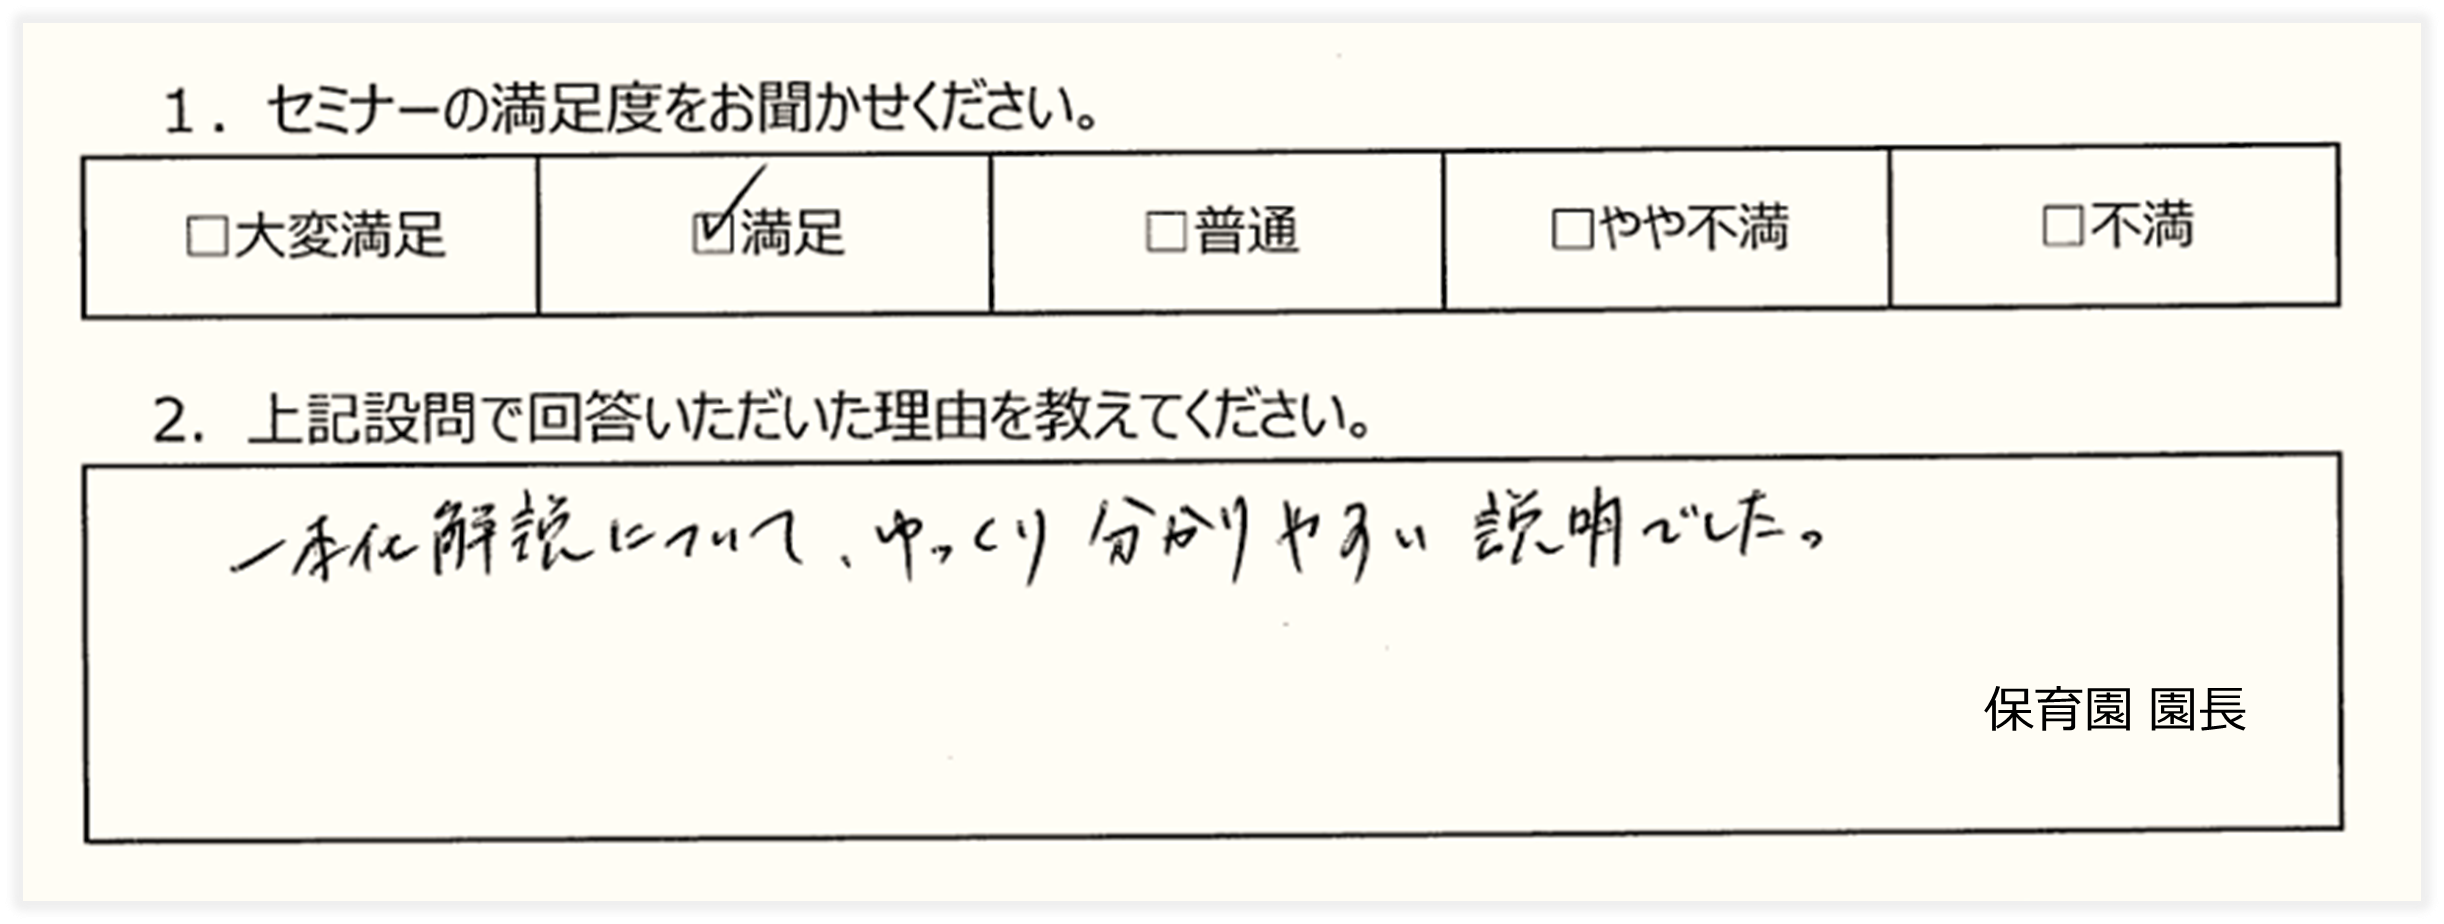 1. セミナーの満足度をお聞かせください。
□大変満足 ☑満足 □普通 □やや不満 □不満
2. 上記設問で回答いただいた理由を教えてください。
一本化解説について、ゆっくり分かりやすい説明でした。
保育園 園長